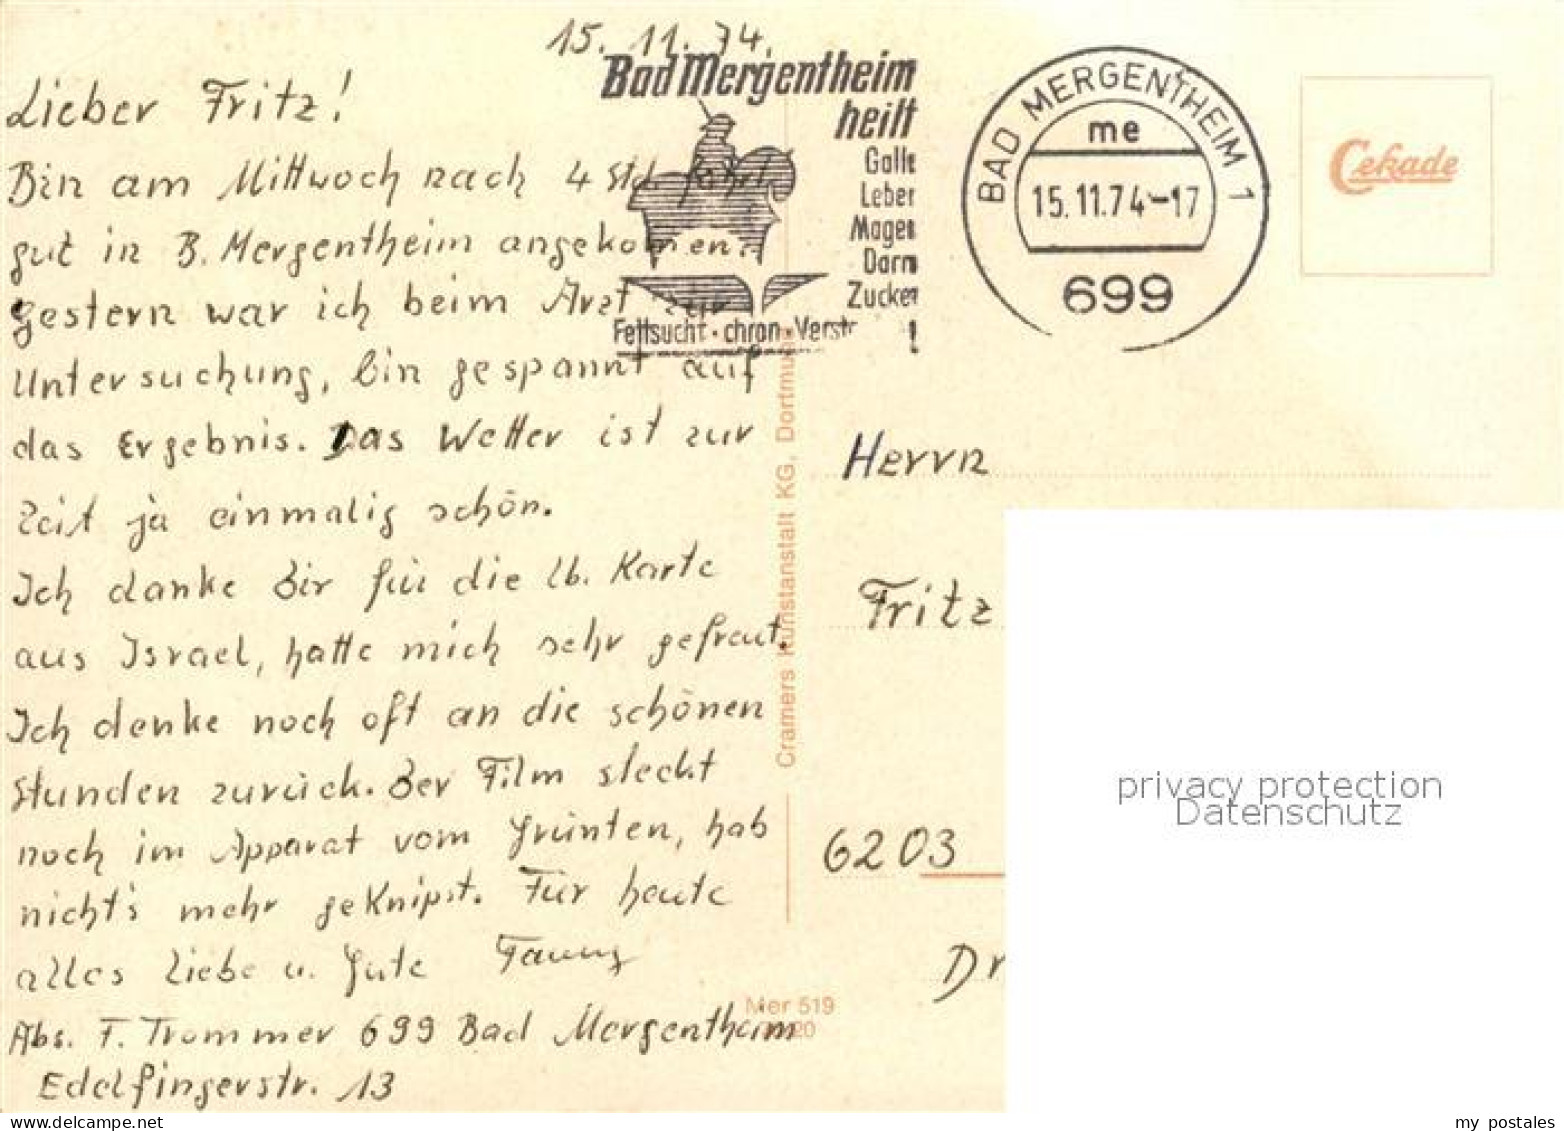 15. 11. 74.
Lieber Fritz!
Bin am Mittwoch nach 4 Std. fahrt
gut in B. Mergentheim angekomen.
gestern war ich beim Arzt zur
Untersuchung, bin gespannt auf
das Ergebnis. Das Wetter ist zur
Zeit ja einmalig schön.
Ich danke Dir für die lb. Karte
aus Israel, hatte mich sehr gefreut.
Ich denke noch oft an die schönen
Stunden zurück. Der Film steckt
noch im Apparat vom Grünten, hab
nicht's mehr geknipst. Für heute
alles Liebe u. Gute Fanny
Abs. F. Trommer 699 Bad Mergentheim
Edelfingerstr. 13
Bad Mergentheim
heilt
Galle
Leber
Magen
Darm
Zucker
Fettsucht · chron. Verstr !
BAD MERGENTHEIM 1
me
15.11.74-17
699
Cekade
Cramers Kunstanstalt KG, Dortmund
Mer 519
20
Herrn
Fritz
6203
Dr
privacy protection
Datenschutz
www.delcampe.net
my postales